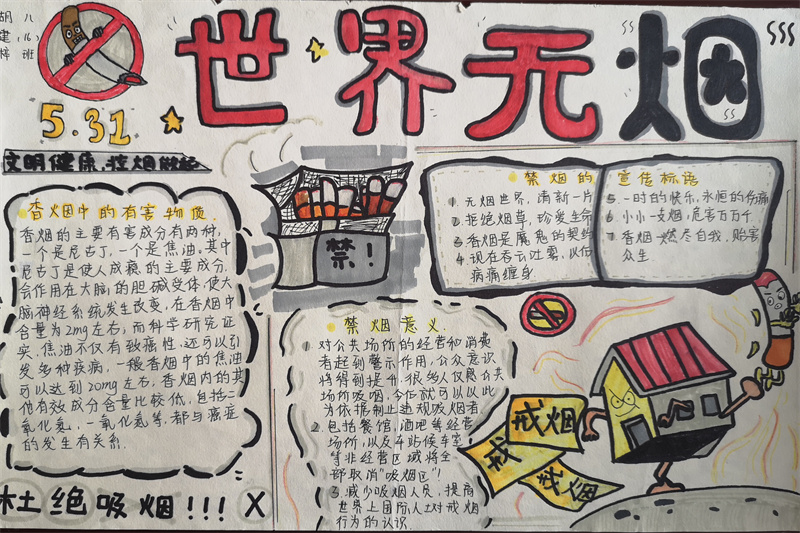 胡 八
建 (16)
梓 班
世界无烟
5.31
文明健康，控烟做起
香烟中的有害物质.
香烟的主要有害成分有两种,
一个是尼古丁,一个是焦油。其中
尼古丁是使人成瘾的主要成分.
会作用在大脑的胆碱受体.使大
脑神经系统发生改变,在香烟中
含量为2mg左右,而科学研究证
实.焦油不仅有致癌性.还可以引
发多种疾病,一根香烟中的焦油
可以达到20mg左右,香烟内的其
他有效成分含量比较低,包括二
氧化氮,一氧化氮等,都与癌症
的发生有关系.
杜绝吸烟!!! X
禁!
禁烟的 宣传标语
1. 无烟世界,清新一片
2. 拒绝烟草,珍爱生命
3 香烟是魔鬼的契约
4 现在吞云吐雾,以后
病痛缠身.
5. 一时的快乐,永恒的伤痛
6. 小小一支烟,危害万万千
7. 香烟一燃尽自我,贻害
众生.
禁烟意义.
1. 对公共场所的经营和消费
者起到警示作用,公众意识
将得到提升.很多人仅顾公共
场所吸烟,今后就可以以此
为依据制止违规吸烟者
2. 包括餐馆,酒吧等经营
场所,以及车站候车室
等非经营区域将全
部取消“吸烟区”!
3. 减少吸烟人员,提高
世界上国际人士对戒烟
行为的认识.
戒烟
戒
戒烟